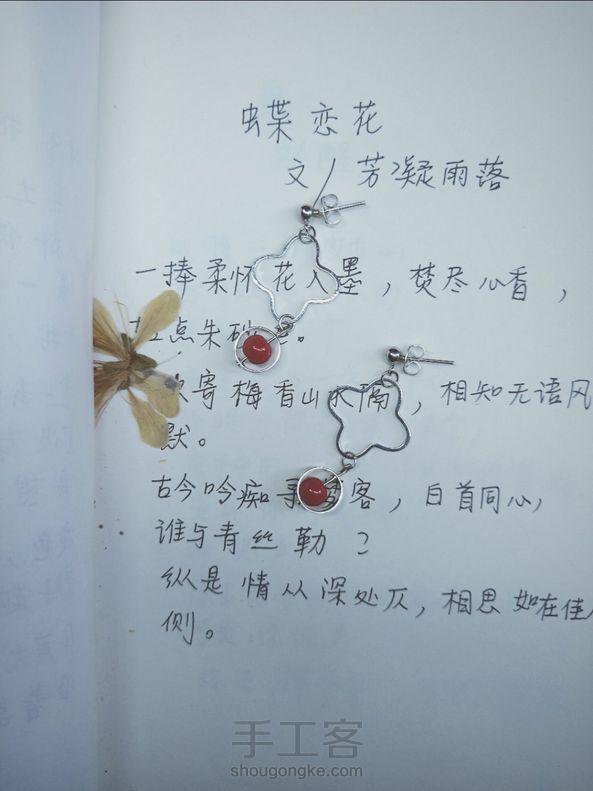 蝶恋花
文/芳凝雨落
一捧柔怀花入墨，焚尽心香，
点朱砂。
寄梅香山水隔，相知无语风
默。
古今吟痴寻客，白首同心，
谁与青丝勒？
纵是情从深处仄，相思如在佳人
侧。
手工客
shougongke.com